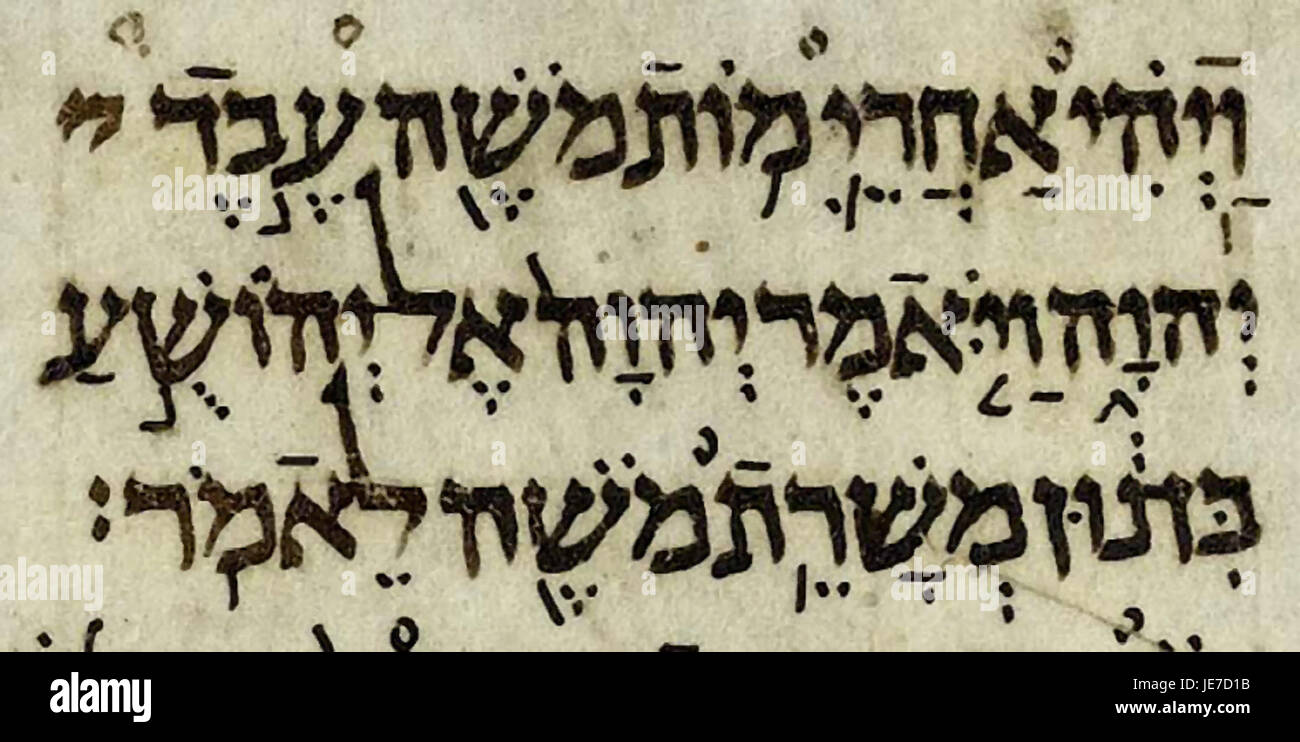 וַיְהִ֗י אַחֲרֵ֛י מ֥וֹת מֹשֶׁ֖ה עֶ֣בֶד י
יְהוָ֑ה וַיֹּ֤אמֶר יְהוָה֙ אֶל יְהוֹשֻׁ֣עַ
בִּן נ֔וּן מְשָׁרֵ֥ת מֹשֶׁ֖ה לֵאמֹֽר׃
alamy
Image ID: JE7D1B
www.alamy.com